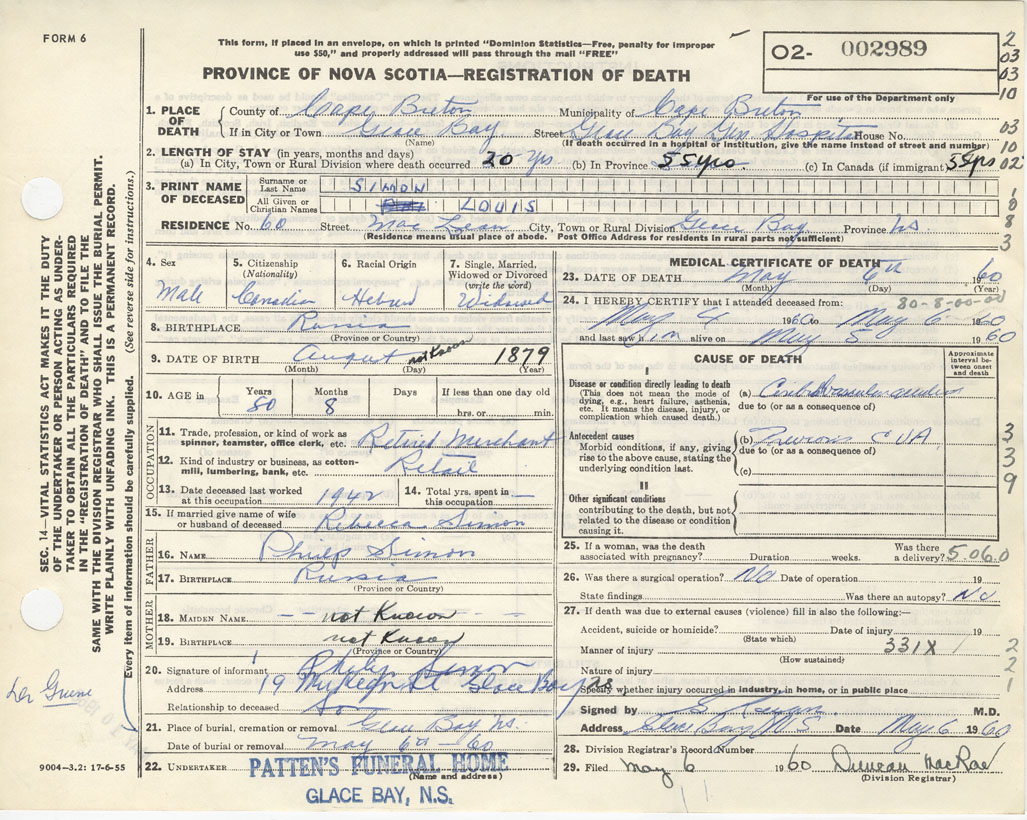 FORM 6
This form, if placed in an envelope, on which is printed "Dominion Statistics—Free, penalty for improper
use $50," and properly addressed will pass through the mail "FREE"
PROVINCE OF NOVA SCOTIA—REGISTRATION OF DEATH
O2- 002989
For use of the Department only
2
03
03
10
03
10
02
1. PLACE OF DEATH
County of Cape Breton Municipality of Cape Breton
If in City or Town Glace Bay Street Glace Bay Gen Hospital House No.
(Name) (If death occurred in a hospital or institution, give the name instead of street and number)
2. LENGTH OF STAY (in years, months and days)
(a) In City, Town or Rural Division where death occurred 20 yrs (b) In Province 55yrs (c) In Canada (if immigrant) 55yrs
3. PRINT NAME OF DECEASED
Surname or Last Name SIMON
All Given or Christian Names LOUIS
RESIDENCE No. 60 Street MacLean City, Town or Rural Division Glace Bay Province NS
(Residence means usual place of abode. Post Office Address for residents in rural parts not sufficient)
4. Sex
Male
5. Citizenship
(Nationality)
Canadian
6. Racial Origin
Hebrew
7. Single, Married,
Widowed or Divorced
(write the word)
Widowed
8. BIRTHPLACE Russia
(Province or Country)
9. DATE OF BIRTH August not Known 1879
(Month) (Day) (Year)
10. AGE in
Years
80
Months
8
Days
If less than one day old
hrs. or min.
OCCUPATION
11. Trade, profession or kind of work as
spinner, teamster, office clerk, etc. Retired Merchant
12. Kind of industry or business, as cotton-
mill, lumbering, bank, etc. Retail
13. Date deceased last worked
at this occupation 1942
14. Total yrs. spent in
this occupation —
15. If married give name of wife
or husband of deceased Rebecca Simon
FATHER
16. NAME Philip Simon
17. BIRTHPLACE Russia
(Province or Country)
MOTHER
18. MAIDEN NAME - not Known -
19. BIRTHPLACE not Known
(Province or Country)
20. Signature of informant Philip Simon
Address 19 Glace Bay NS
Relationship to deceased Son
21. Place of burial, cremation or removal Glace Bay NS.
Date of burial or removal May 6th - 60
22. UNDERTAKER PATTEN'S FUNERAL HOME
(Name and address)
GLACE BAY, N.S.
MEDICAL CERTIFICATE OF DEATH
23. DATE OF DEATH May 6th 1960
(Month) (Day) (Year)
24. I HEREBY CERTIFY that I attended deceased from: 80-8-00-00
May 4 1960 to May 6 1960
and last saw him alive on May 5 1960
CAUSE OF DEATH
Approximate
interval be-
tween onset
and death
I
Disease or condition directly leading to death
(This does not mean the mode of
dying, e.g., heart failure, asthenia,
etc. It means the disease, injury, or
complication which caused death.)
(a)
due to (or as a consequence of)
Antecedent causes
Morbid conditions, if any, giving
rise to the above cause, stating the
underlying condition last.
(b) Previous CVA
due to (or as a consequence of)
(c)
II
Other significant conditions
contributing to the death, but not
related to the disease or condition
causing it.
3
3
9
25. If a woman, was the death
associated with pregnancy? Duration weeks. Was there
a delivery? 5.06.0
26. Was there a surgical operation? No Date of operation 19
State findings Was there an autopsy? No
27. If death was due to external causes (violence) fill in also the following:—
Accident, suicide or homicide? Date of injury 19
(State which)
Manner of injury 331X
(How sustained)
Nature of injury
Specify whether injury occurred in industry, in home, or in public place
2
2
1
Signed by M.D.
Address Glace Bay NS Date May 6 1960
28. Division Registrar's Record Number
29. Filed May 6 1960 Duncan MacRae
(Division Registrar)
SEC. 14—VITAL STATISTICS ACT MAKES IT THE DUTY
OF THE UNDERTAKER OR PERSON ACTING AS UNDER-
TAKER TO OBTAIN ALL THE PARTICULARS REQUIRED
IN THE "REGISTRATION OF DEATH" AND TO FILE THE
SAME WITH THE DIVISION REGISTRAR WHO SHALL ISSUE THE BURIAL PERMIT.
WRITE PLAINLY WITH UNFADING INK. THIS IS A PERMANENT RECORD.
Every item of information should be carefully supplied. (See reverse side for instructions.)
9004-3.2: 17-6-55